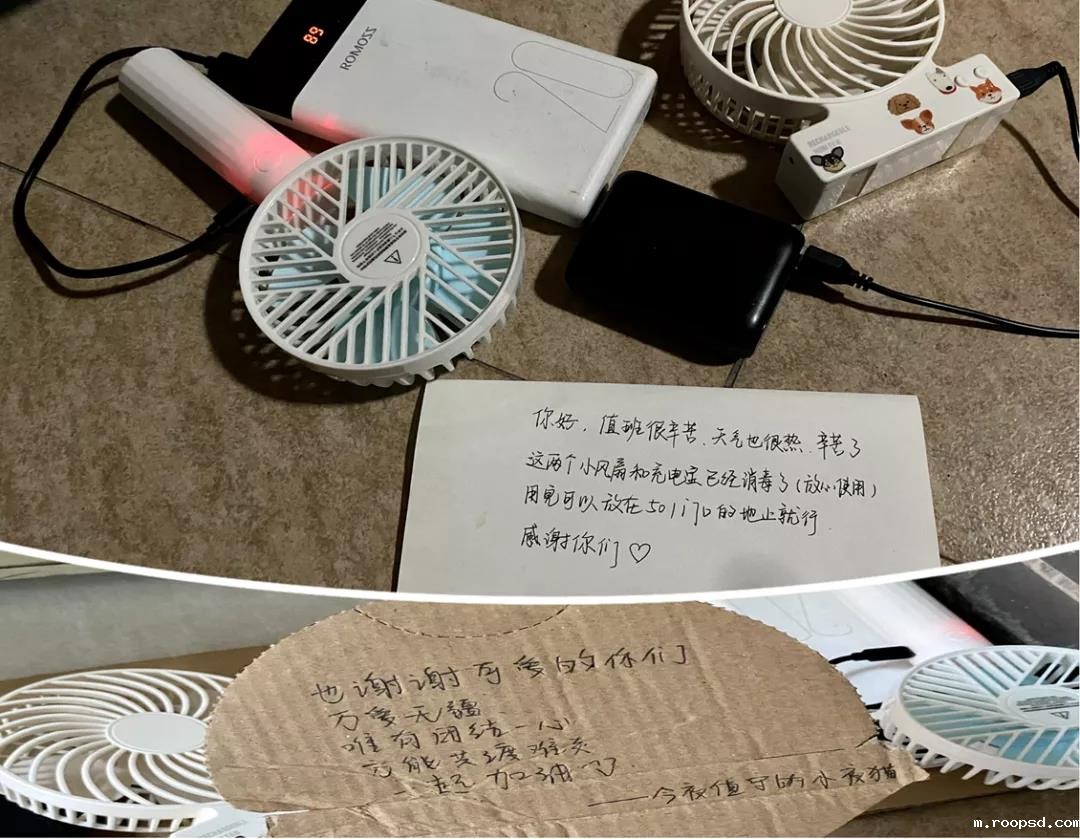 89
ROMOSS
20
RECHARGEABLE
你好，值班很辛苦、天气也很热、辛苦了
这两个小风扇和充电宝已经消毒了(放心使用)
用完可以放在501门口的地上就行
感谢你们♡
也谢谢可爱的你们
万爱无疆
唯有团结一心
方能共渡难关
一起加油吧
——今夜值守的小夜猫
m.roopsd.com